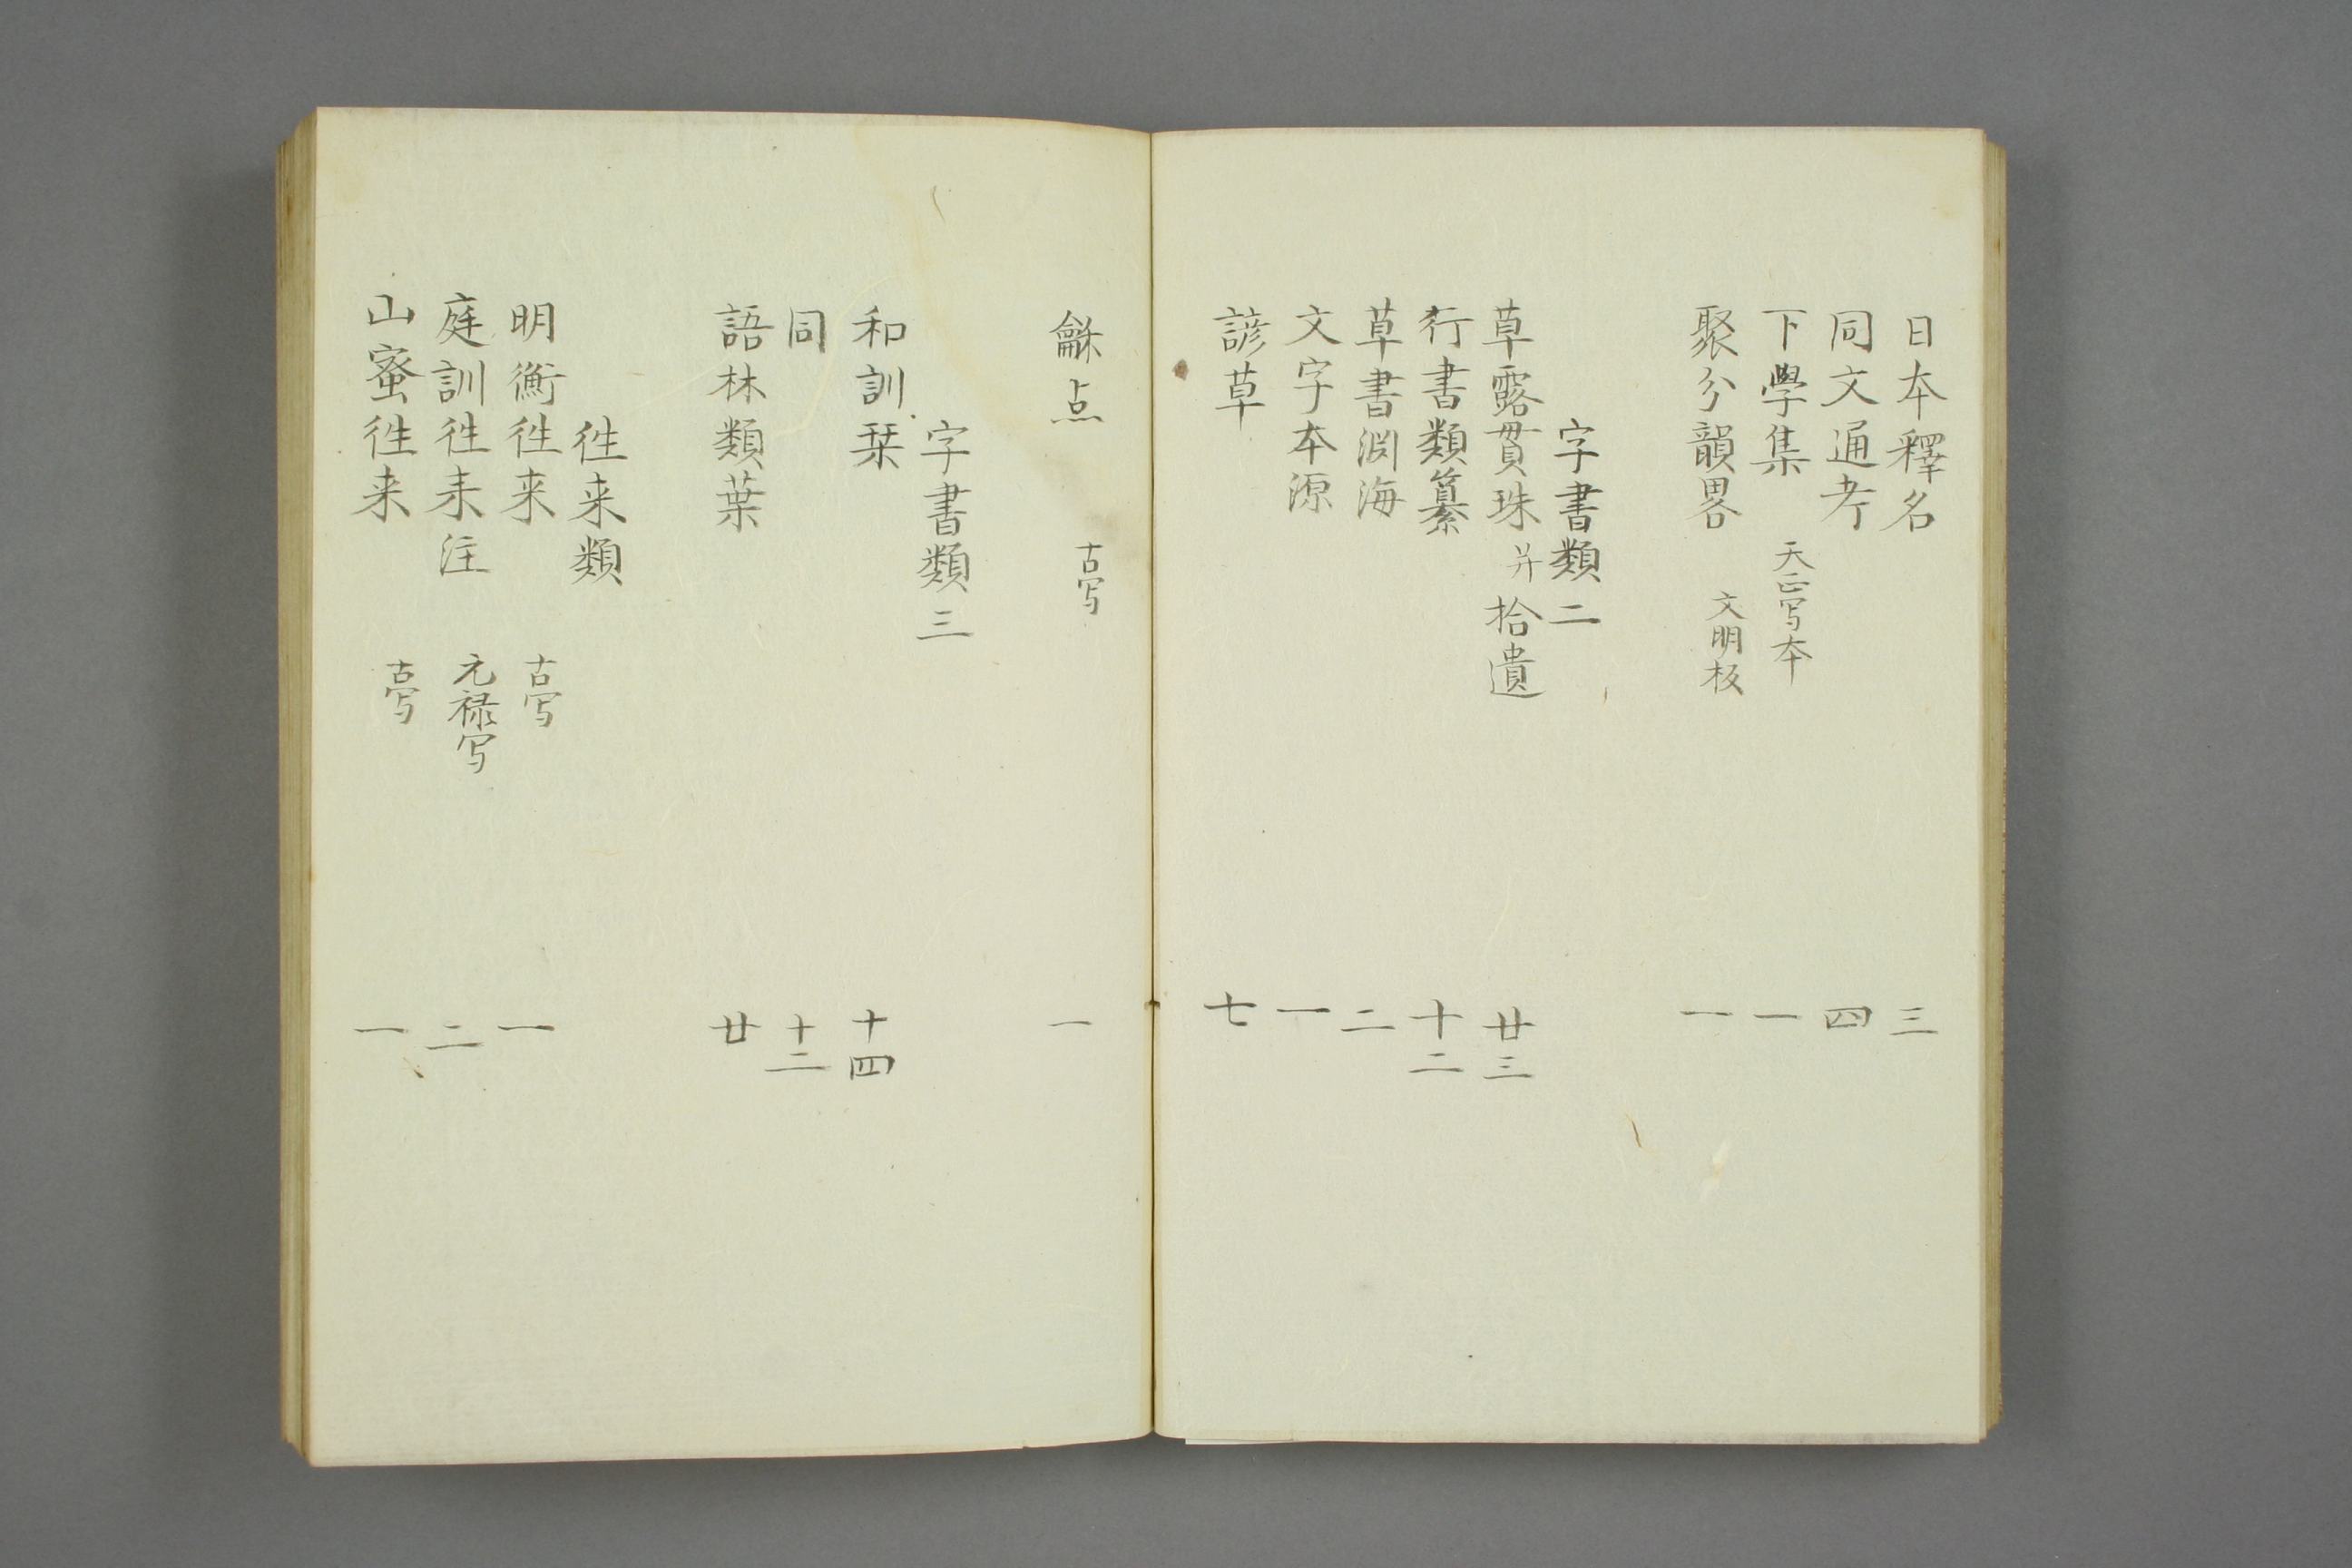 日本釋名　三
同文通考　四
下學集　天正写本　一
聚分韻畧　文明板　一
字書類二
草露貫珠并拾遺　廿三
行書類纂　十二
草書淵海　二
文字本源　一
諺草　七
龢点　古写　一
字書類三
和訓栞　十四
同　十二
語林類葉　廿
徃来類
明衡徃来　古写　一
庭訓徃来注　元禄写　二
山蜜徃来　古写　一